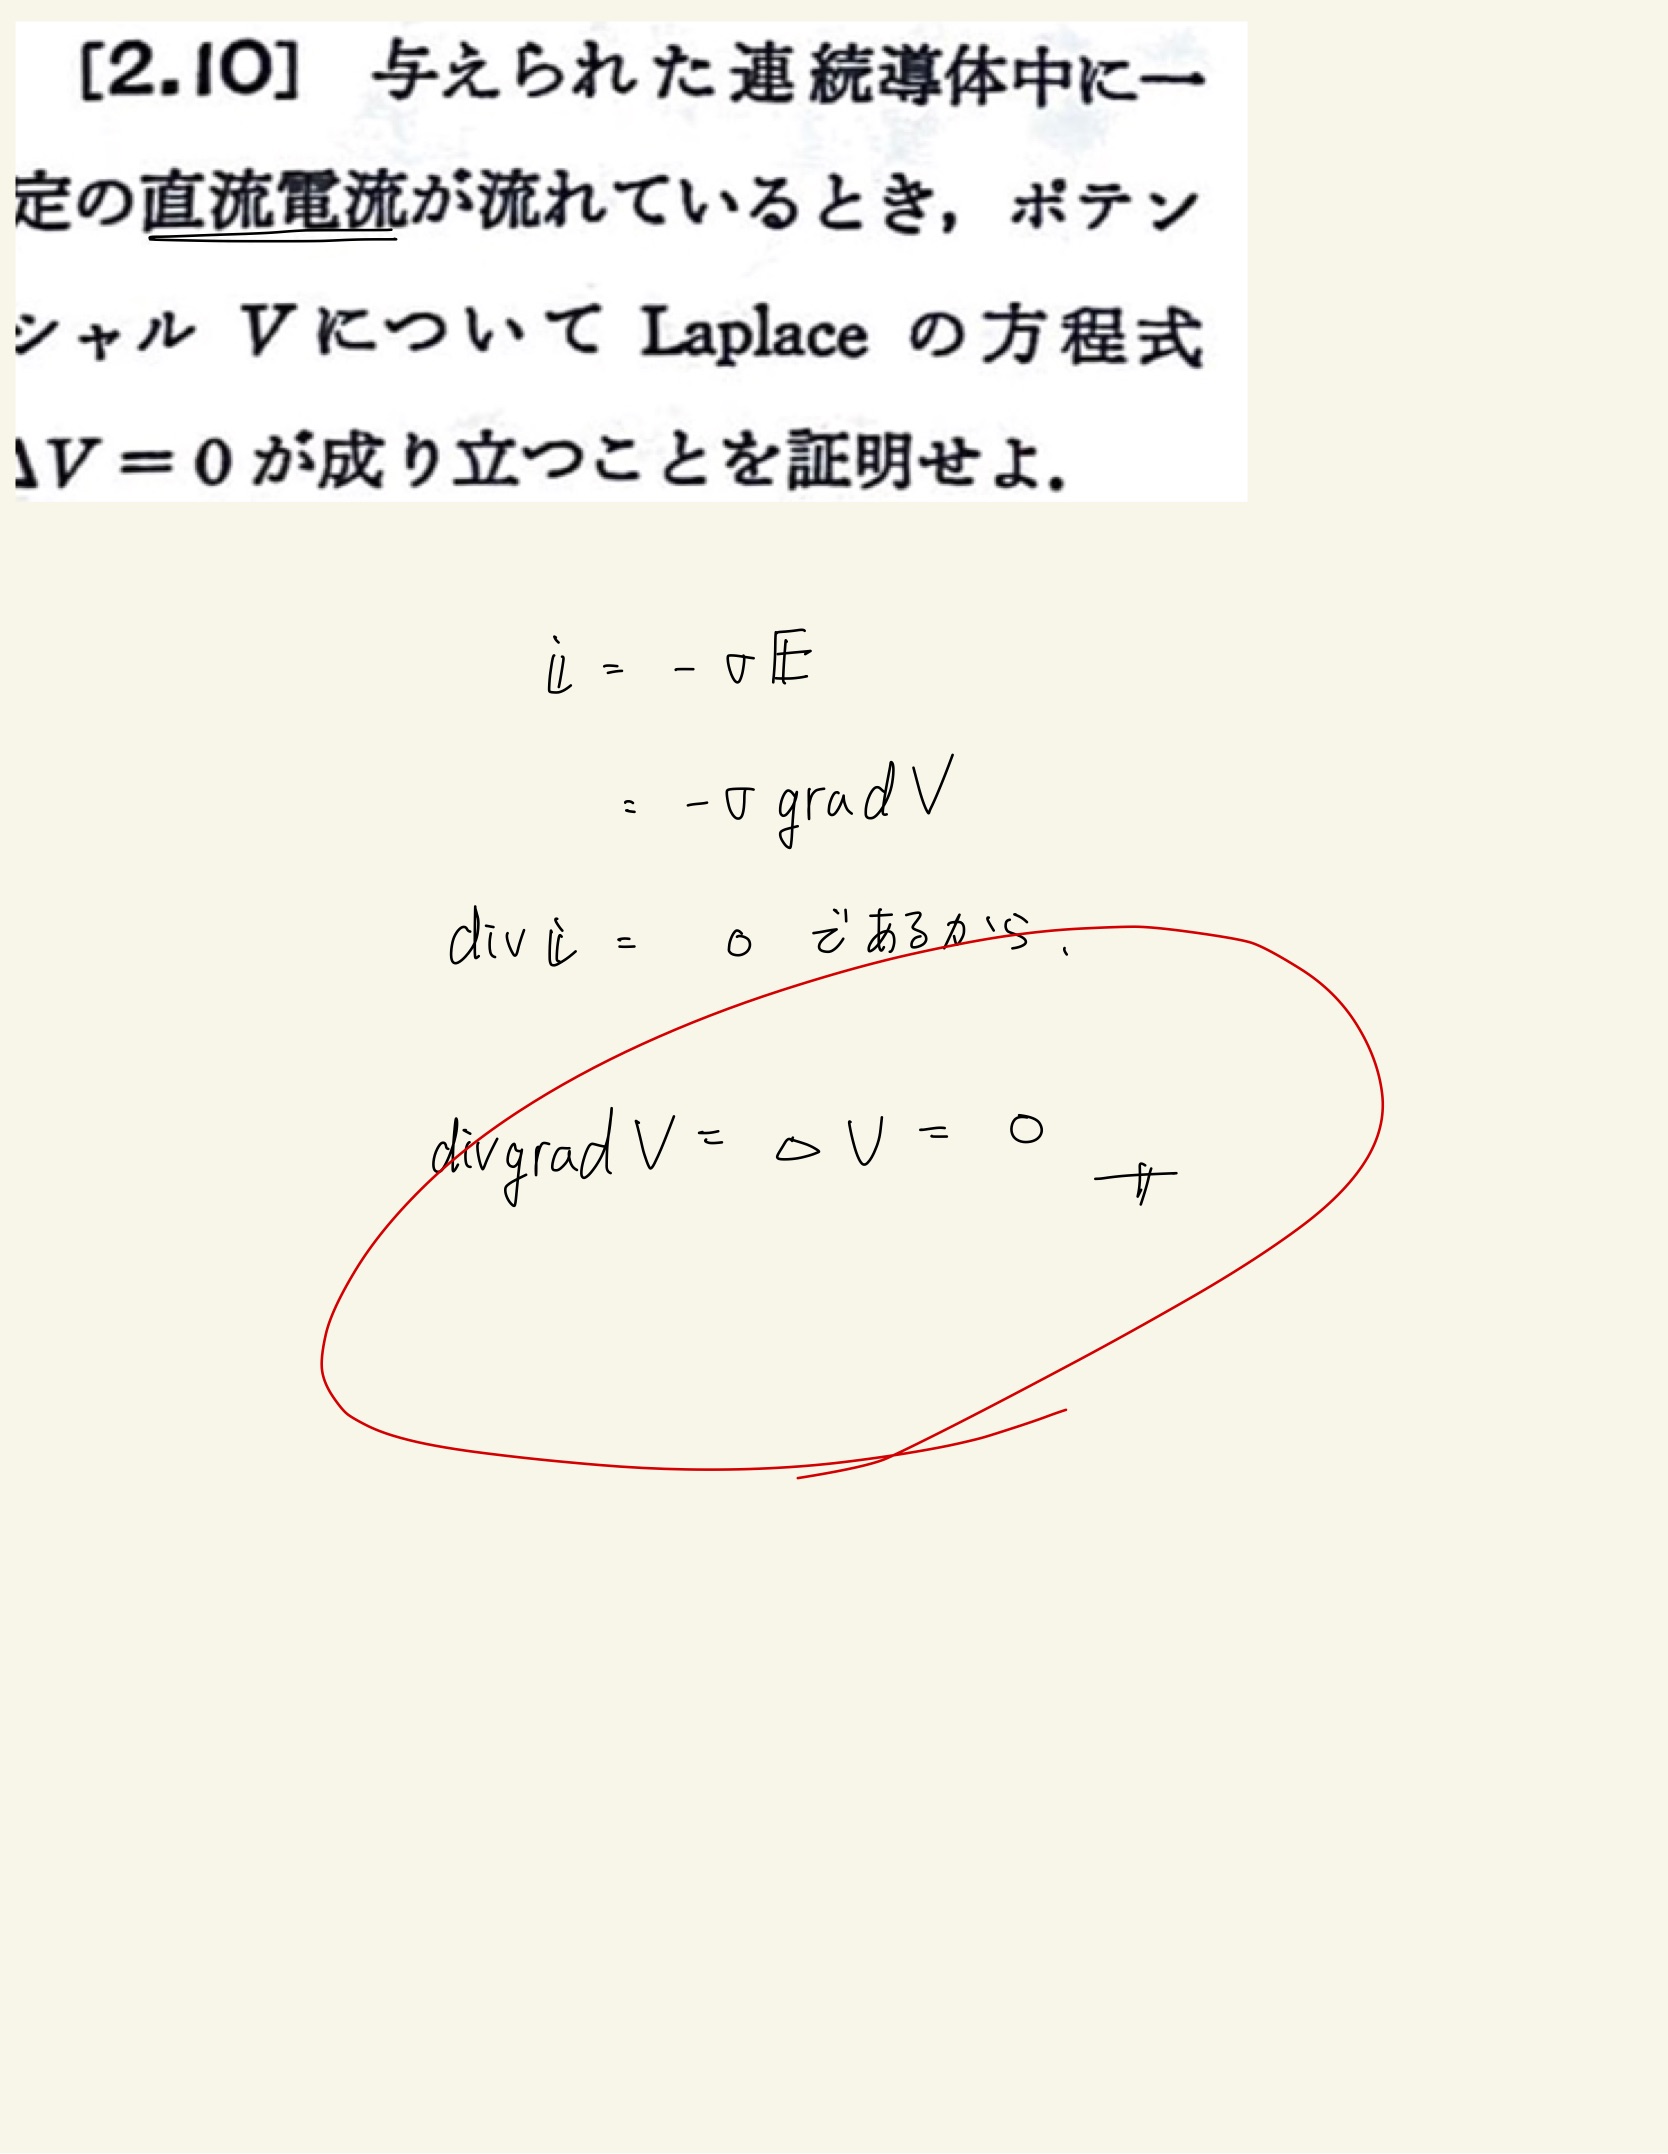 [2.10] 与えられた連続導体中に一
定の直流電流が流れているとき，ポテン
シャル V について Laplace の方程式
ΔV＝0 が成り立つことを証明せよ．
i = - σE
= - σ grad V
div i = 0 であるから、
div grad V = △V = 0